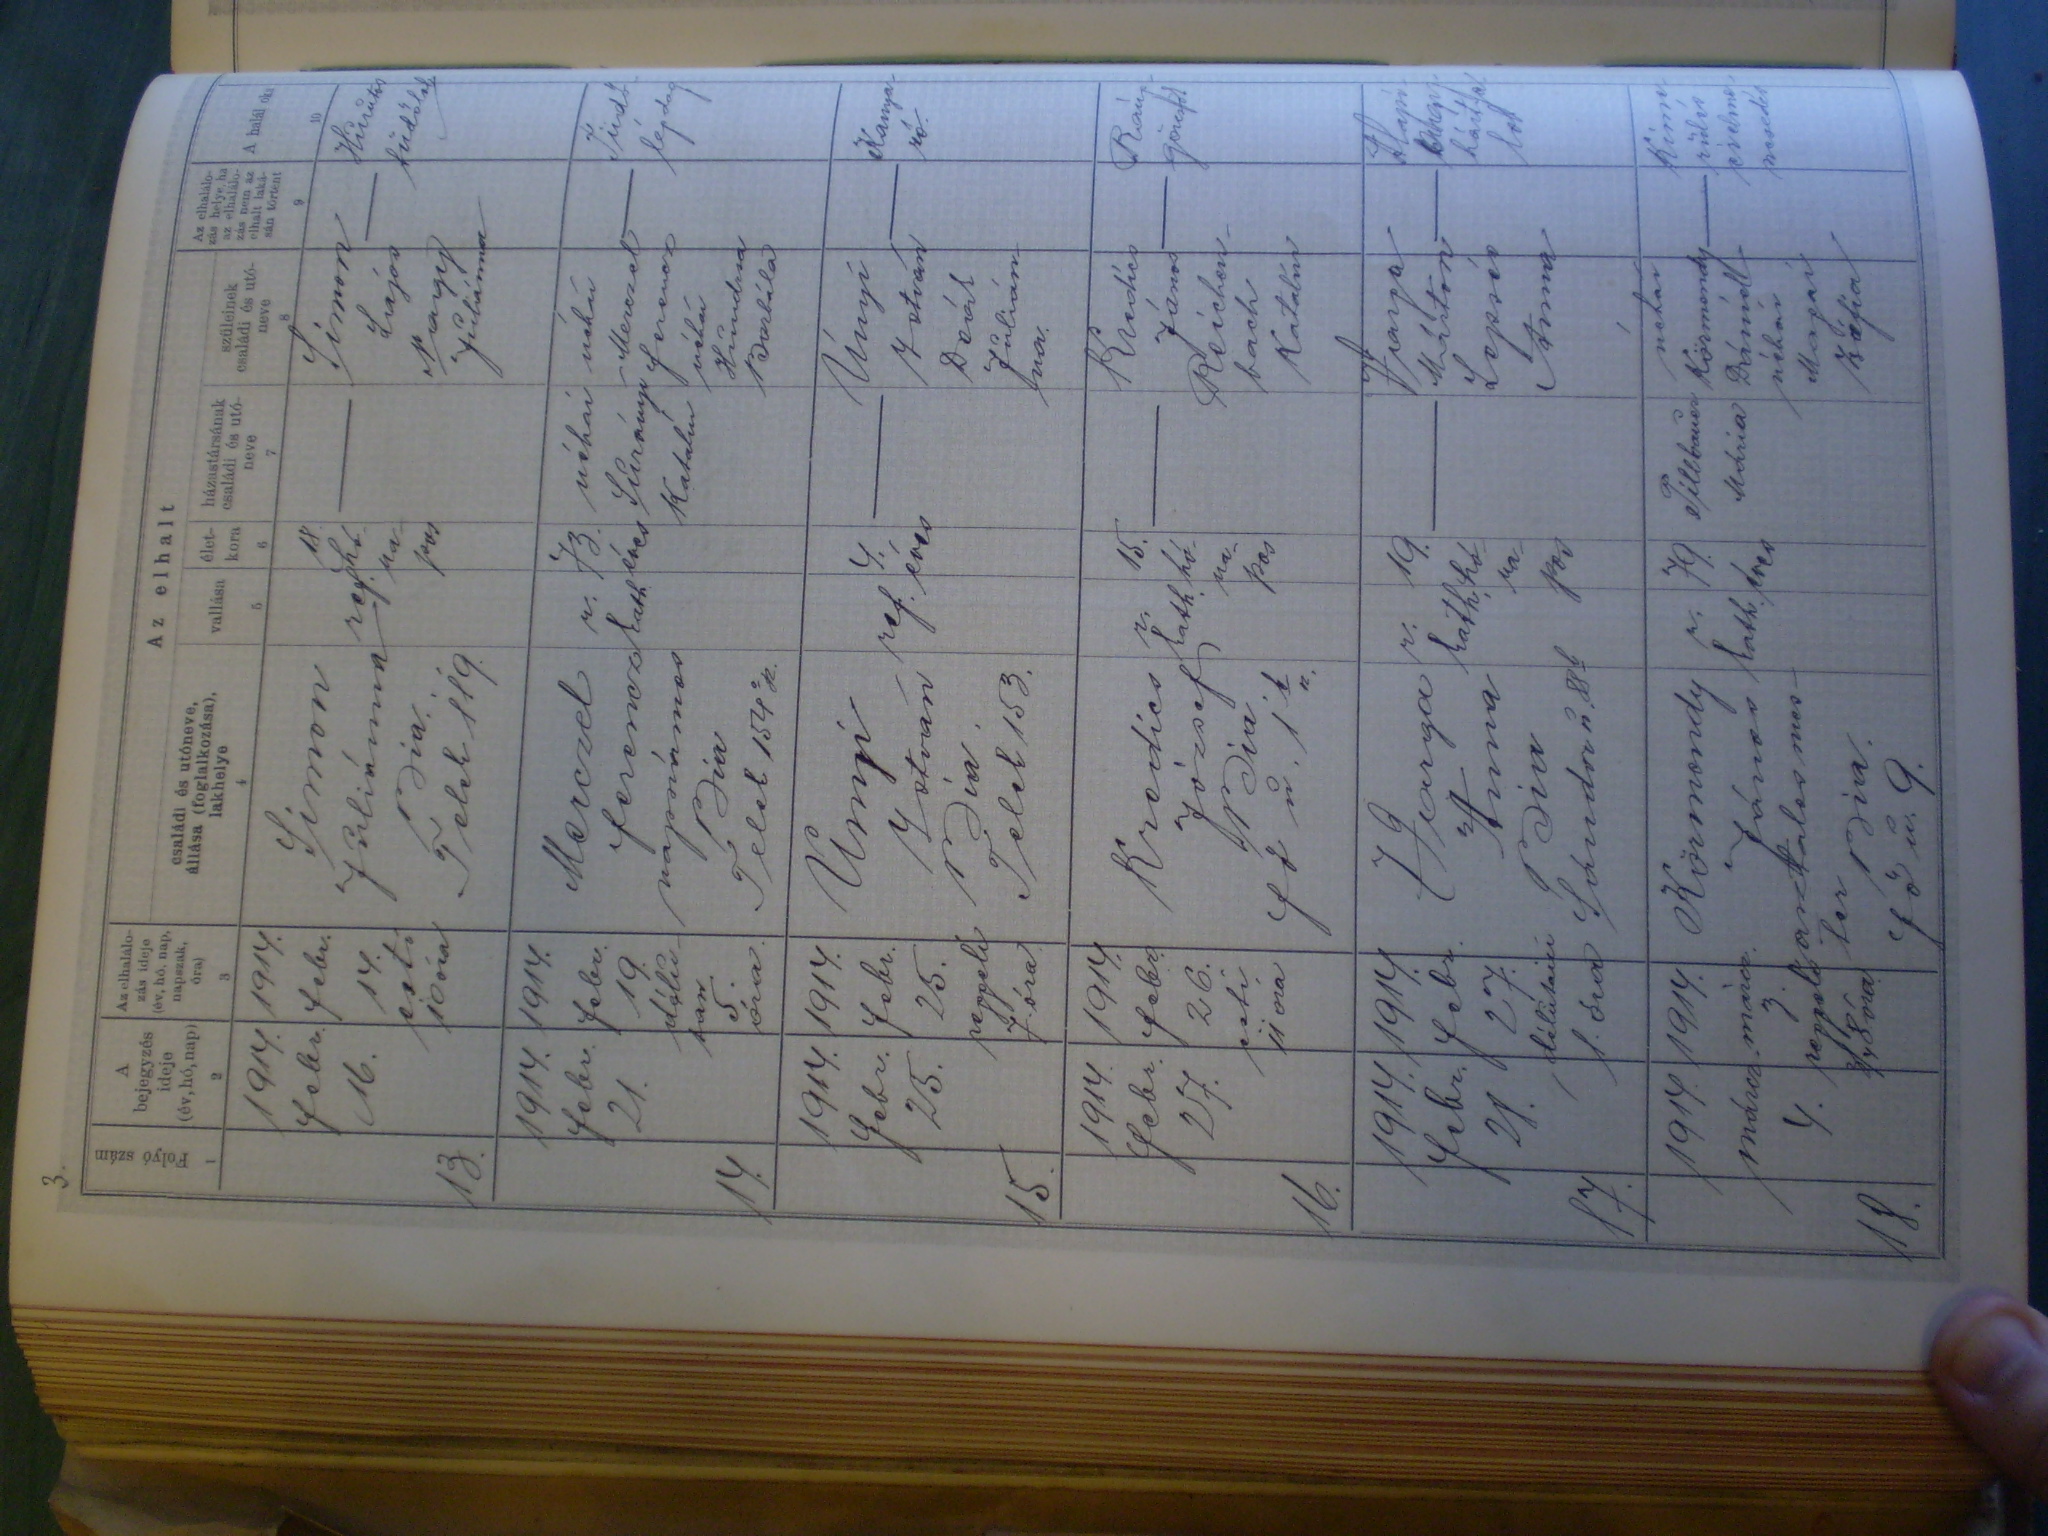 3.
Folyó szám
A bejegyzés ideje (év, hó, nap)
Az elhalálo-
zás ideje
(év, hó, nap,
napszak,
óra)
Az elhalt
családi és utóneve,
állása (foglalkozása),
lakhelye
vallása
élet-
kora
házastársának
családi és utó-
neve
szüleinek
családi és utó-
neve
Az elhaláló-
zás helye, ha
az elhaláló-
zás nem az
elhalt laká-
sán történt
A halál oka
1 2 3 4 5 6 7 8 9 10
13.
1914.
Febr.
16.
1914.
Febr.
14.
esti
10 óra
Simon
Juliánna
Bia.
Telek 119.
ref.
18.
hó-
na-
pos
Simon
Lajos
Nagy
Juliánna
14.
1914.
Febr.
21.
1914.
Febr.
19.
5.
óra.
Marczel
Ferencz
napszámos
Bia
Telek 154
r.
kath.
73.
éves
néhai
Katalin
néhai
Marczel
Ferencz
néhai
Borbála
Tüdő-
légdag
15.
1914.
Febr.
25.
1914.
Febr.
25.
reggeli
7. óra
Unyi
István
Bia
Telek 153.
ref.
4.
éves
Unyi
István
Deák
Julián-
na.
Kanya-
ró.
16.
1914.
Febr.
27.
1914.
Febr.
26.
esti
11 óra
Kredics
József
Bia
Fő u. 1
r.
kath.
15.
hó-
na-
pos
Kredics
János
Reichen-
bach
Katalin
Ráng-
görcs
17.
1914.
Febr.
28.
1914.
Febr.
27.
délutáni
1. óra
Varga
Anna
Bia
Sándor u.
r.
kath.
19.
hó-
na-
pos
Varga
Márton
Anna
18.
1914.
márcz.
4.
1914.
márcz.
3.
reggeli
3/4 8 óra
Körmendy
János
asztalosmes-
ter Bia.
Fő u. 9.
r.
kath.
79.
éves
Mária
néhai
Körmendy
Dániel
néhai
Zsófia
Kime-
rülés